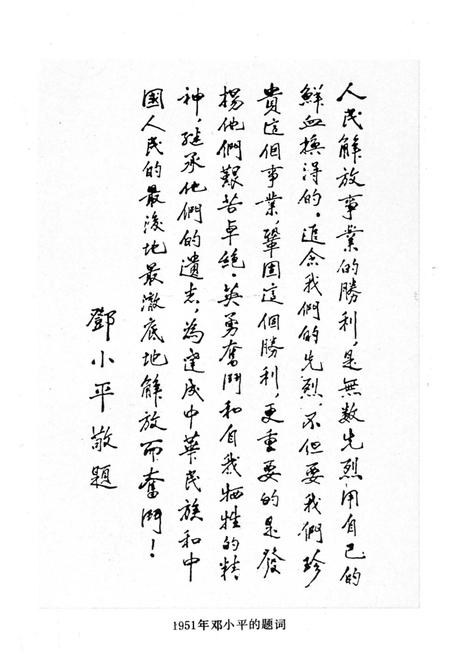 人民解放事業的勝利，是無数先烈用自己的
鮮血換得的。追念我們的先烈，不但要我們珍
貴這個事業，鞏固這個勝利，更重要的是發
揚他們艱苦卓絶，英勇奮鬥和自我牺牲的精
神，継承他們的遺志，為達成中華民族和中
國人民的最後地最澈底地解放而奮鬥！
鄧小平敬題
1951年邓小平的题词